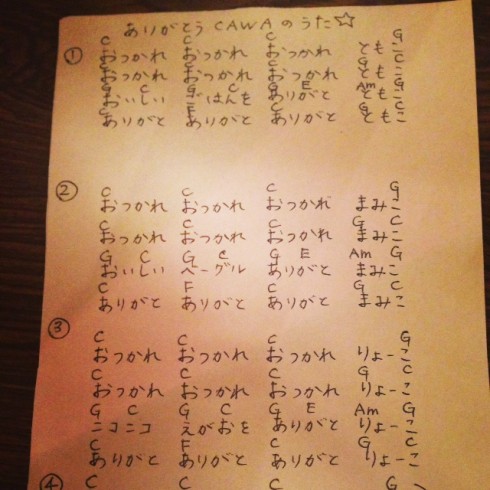 ありがとうCAWAのうた☆
① C C C G
おつかれ おつかれ おつかれ ともこ
C C C G C
おつかれ おつかれ おつかれ ともこ
G C G C G E Am G
おいしい ごはんを ありがと ともこ
C F C G C
ありがと ありがと ありがと ともこ
② C C C G
おつかれ おつかれ おつかれ まみこ
C C C G C
おつかれ おつかれ おつかれ まみこ
G C G C G E Am G
おいしい ベーグル ありがと まみこ
C F C G C
ありがと ありがと ありがと まみこ
③ C C C G
おつかれ おつかれ おつかれ りょーこ
C C C G C
おつかれ おつかれ おつかれ りょーこ
G C G C G E Am G
ニコニコ えがおを ありがと りょーこ
C F C G C
ありがと ありがと ありがと りょーこ
④ C C C G